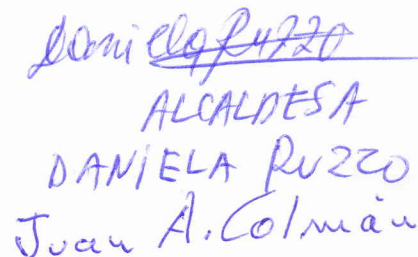 Daniela Ruzzo
ALCALDESA
DANIELA RUZZO
Juan A. Colmán